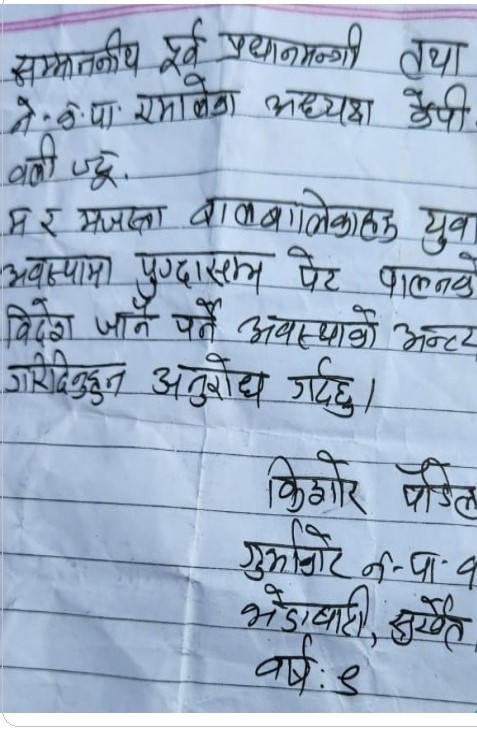 सम्माननीय पूर्व प्रधानमन्त्री तथा
ने.क.पा. एमालेका अध्यक्ष केपी
वली ज्यू.
म र मजस्ता बालबालिकाहरू युवा
अवस्थामा पुग्दासम्म पेट पाल्नको
विदेश जानै पर्ने अवस्थाको अन्त्य
गरिदिनुहुन अनुरोध गर्दछु।
किशोर पौडेल
गुर्भाकोट न.पा. १
भेडाबारी, सुर्खेत
वर्ष: ९